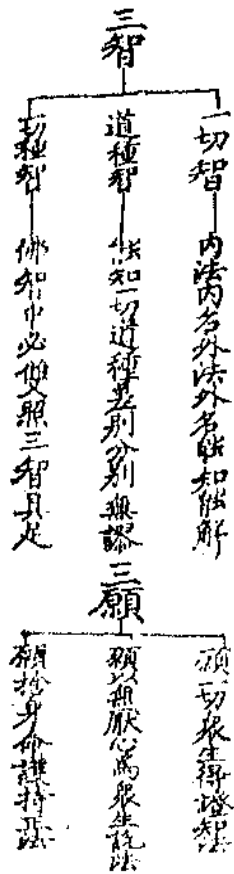 三智
一切智 內法內名外法外名能知能解
道種智 能知一切道種差別分別無謬
一切種智 佛智中必雙照三智具足
三願
願一切衆生得證智法
願以無厭心為衆生說法
願捨身命護持正法